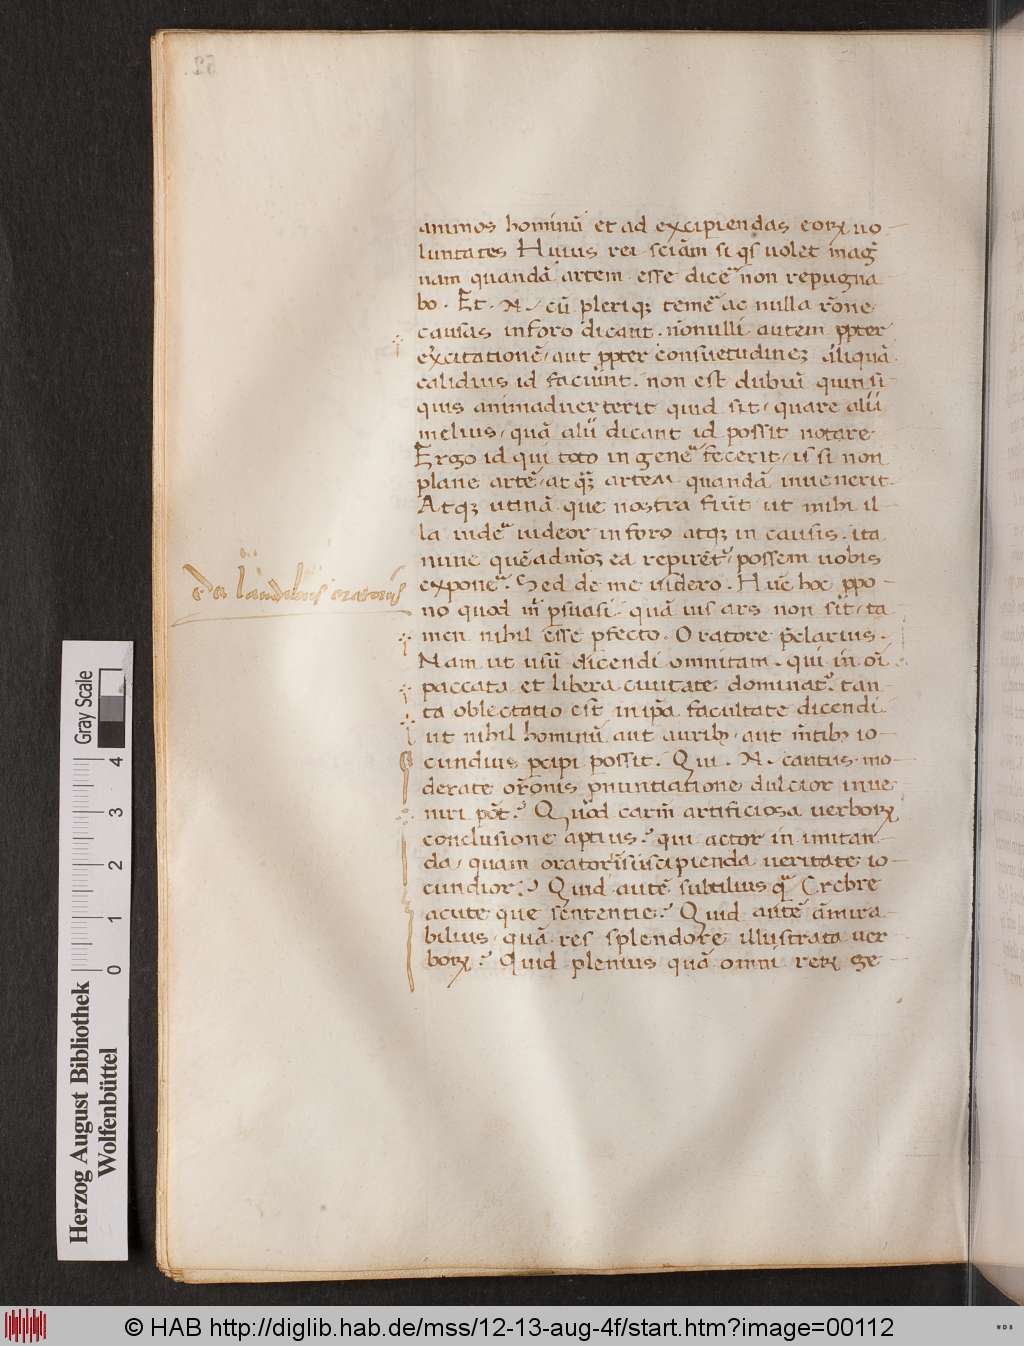 animos hominū et ad excipiendas eoꝝ uo-
luntates Huius rei sciām si q̄s uolet mag-
nam quandā artem esse dicē non repugna
bo. Et. N. cū pleriqꝫ temē ac nulla rōne
causas inforo dicant. nōnulli autem ꝓpter
exercitationē / aut ꝓpter consuetudineꝫ aliquā
calidius id faciunt. non est dubiū quin si
quis animaduerterit quid sit / quare alii
melius / quā alii dicant id possit notare
Ergo id qui toto in genē fecerit / is si non
plane artē / at q̄si artem quandā inuenerit.
Atqꝫ utinā que nostra fiūt ut mihi il-
la uidē uideor inforo atqꝫ in causis. ita
nunc quēadmōꝫ ea repirēt᷑ possem uobis
exponē. Sed de me uidero. Hūc hoc ꝓpo-
no quod m̄ psuasi quā uis ars non sit / ta
men nihil esse pfecto. Oratore p̄clarius.
Nam ut usū dicendi omnitam. qui in oī
paccata et libera ciuitate dominat᷑ tan-
ta oblectatio est in ip̄a facultate dicendi
ut nihil hominū aut auribꝫ aut m̄tibꝫ io-
cundius pcipi possit. Qui. N. cantus mo-
derate orōnis ꝓnuntiatione dulcior inue-
niri pōt? Quod carm̄ artificiosa uerboꝝ
conclusione aptius? qui actor in imitan-
da / quam orator suscipienda ueritate io-
cundior? Quid autē subtilius q̄ Crebre
acute que sententie? Quid autē āmira-
bilius / quā res splendore illustrata uer
boꝝ? Quid plenius quā omni reꝝ ge-
de laudibus oratoris
52.
Gray Scale
0 1 2 3 4
Herzog August Bibliothek
Wolfenbüttel
© HAB http://diglib.hab.de/mss/12-13-aug-4f/start.htm?image=00112